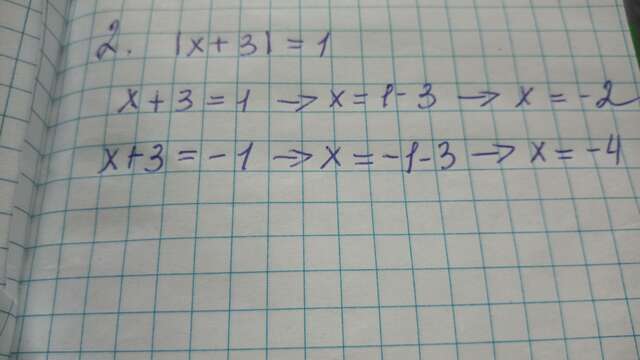 2. |x+3|=1
x+3=1 → x=1-3 → x=-2
x+3=-1 → x=-1-3 → x=-4